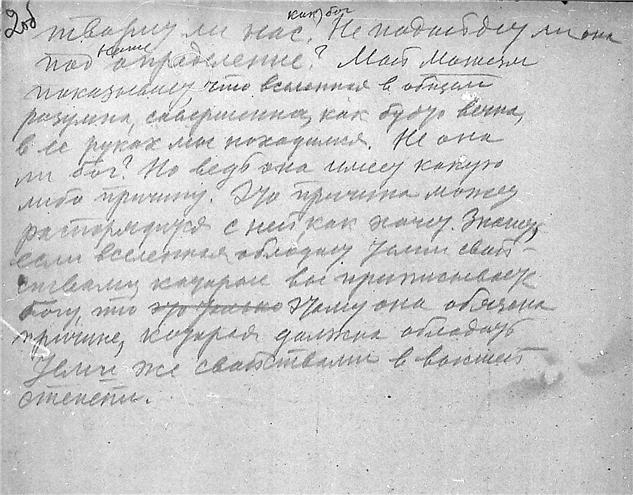 2об
как бог
творит ли нас. Не подходит ли она
наше
под определение? Мой можем
показывает, что вселенная в общем
разумна, совершенна, как будто вечна,
в ее руках мы находимся. Не она
ли бог? Но ведь она имеет какую
либо причину. Эта причина может
распорядиться с ней как хочет. Значит,
если вселенная обладает теми свой-
ствами, которые вы приписываете
богу, то это только этому она обязана
причине, которая должна обладать
теми же свойствами в высшей
степени.